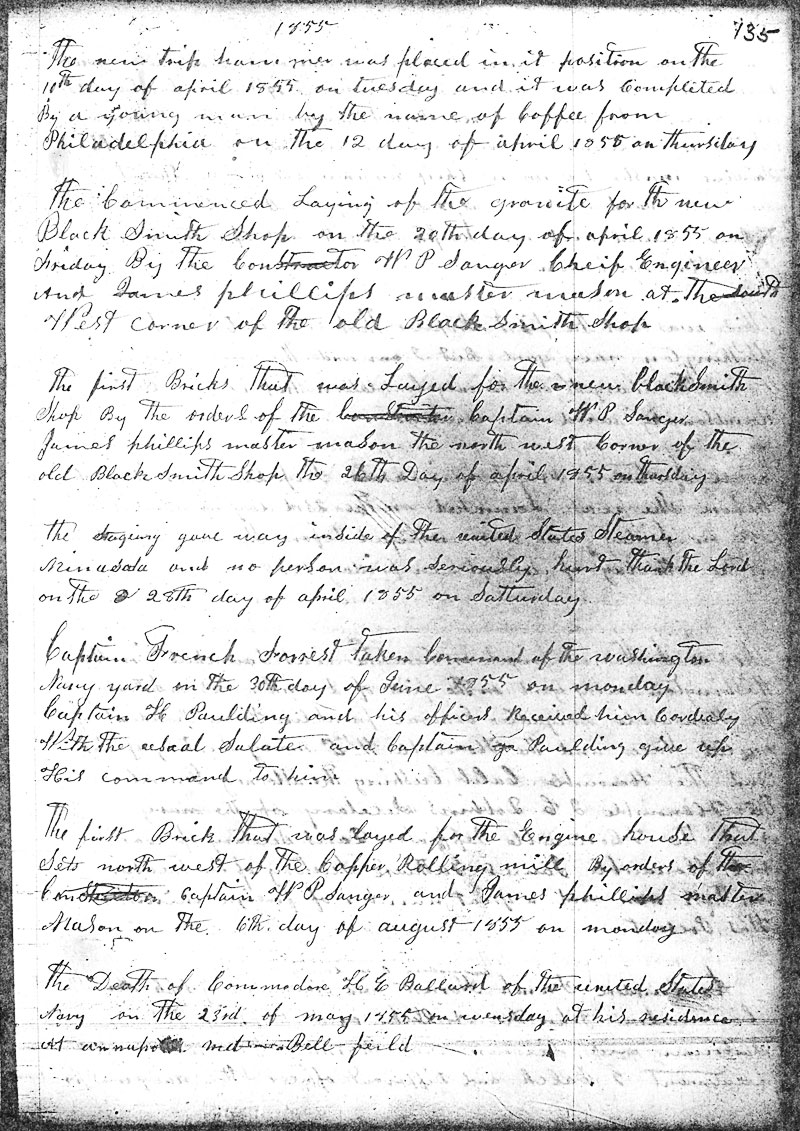 1855
135
The new trip hammer was placed in it position on the
10th day of april 1855 on tuesday and it was Completed
By a young man by the name of Coffee from
Philadelphia on the 12 day of april 1855 on thursday
the Commenced Laying of the granite for th new
Black Smith Shop on the 20th day of april 1855 on
Friday By the Constructor W P Sanger Cheif Engineer
And James phillips master mason at the south
West corner of the old Black Smith Shop
the first Bricks that was Layed for the new blackSmith
Shop By the orders of the Captain W P Sanger
James phillips master mason the north west Corner of the
old Black Smith Shop the 26th Day of april 1855 on thursday
the staging gave way inside of the united States Steamer
Minasota and no person was seriously hurt thank the Lord
on the 28th day of april 1855 on Satturday
Captain French Forrest taken Command of the washington
Navy yard on the 30th day of June 1855 on monday
Captain H Paulding and his officers Received him Cordialy
With the usual Salute and Captain Paulding give up
His command to him
The first Brick that was layed for the Engine house that
Sets north west of the Copper Rolling mill By orders of the
Captain W P Sanger and James phillips master
Mason on the 6th day of august 1855 on monday
the Death of Commodore H E Ballard of the united States
Navy on the 23rd of may 1855 on wensday at his residence
At annapolis md Bell feild